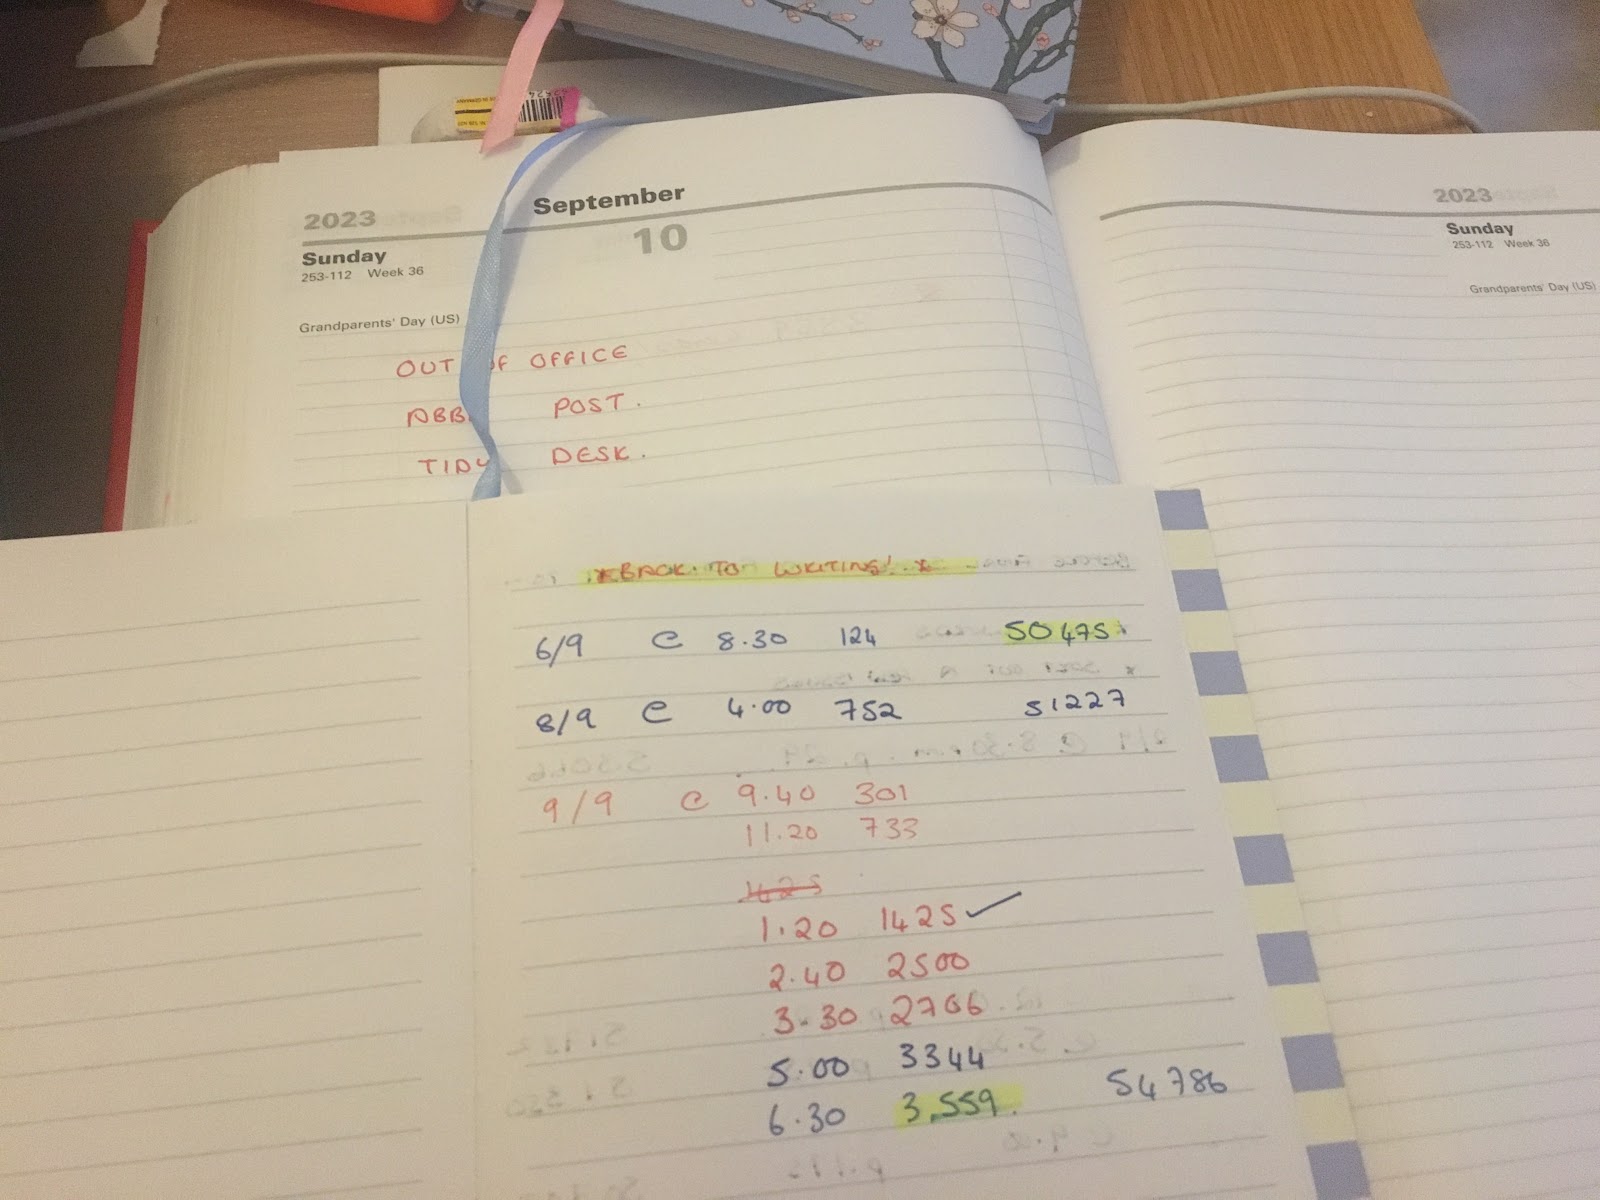 2023 September
Sunday 10
253-112 Week 36
Grandparents' Day (US)
OUT OF OFFICE
POST.
TIDY DESK.
2023
Sunday
253-112 Week 36
Grandparents' Day (US)
*BACK TO WRITING! *
6/9 @ 8.30 124 50475*
8/9 @ 4.00 752 51227
9/9 @ 9.40 301
11.20 733
1.20 1425 ✓
2.40 2500
3-30 2766
5.00 3344
6.30 3,559. 54786